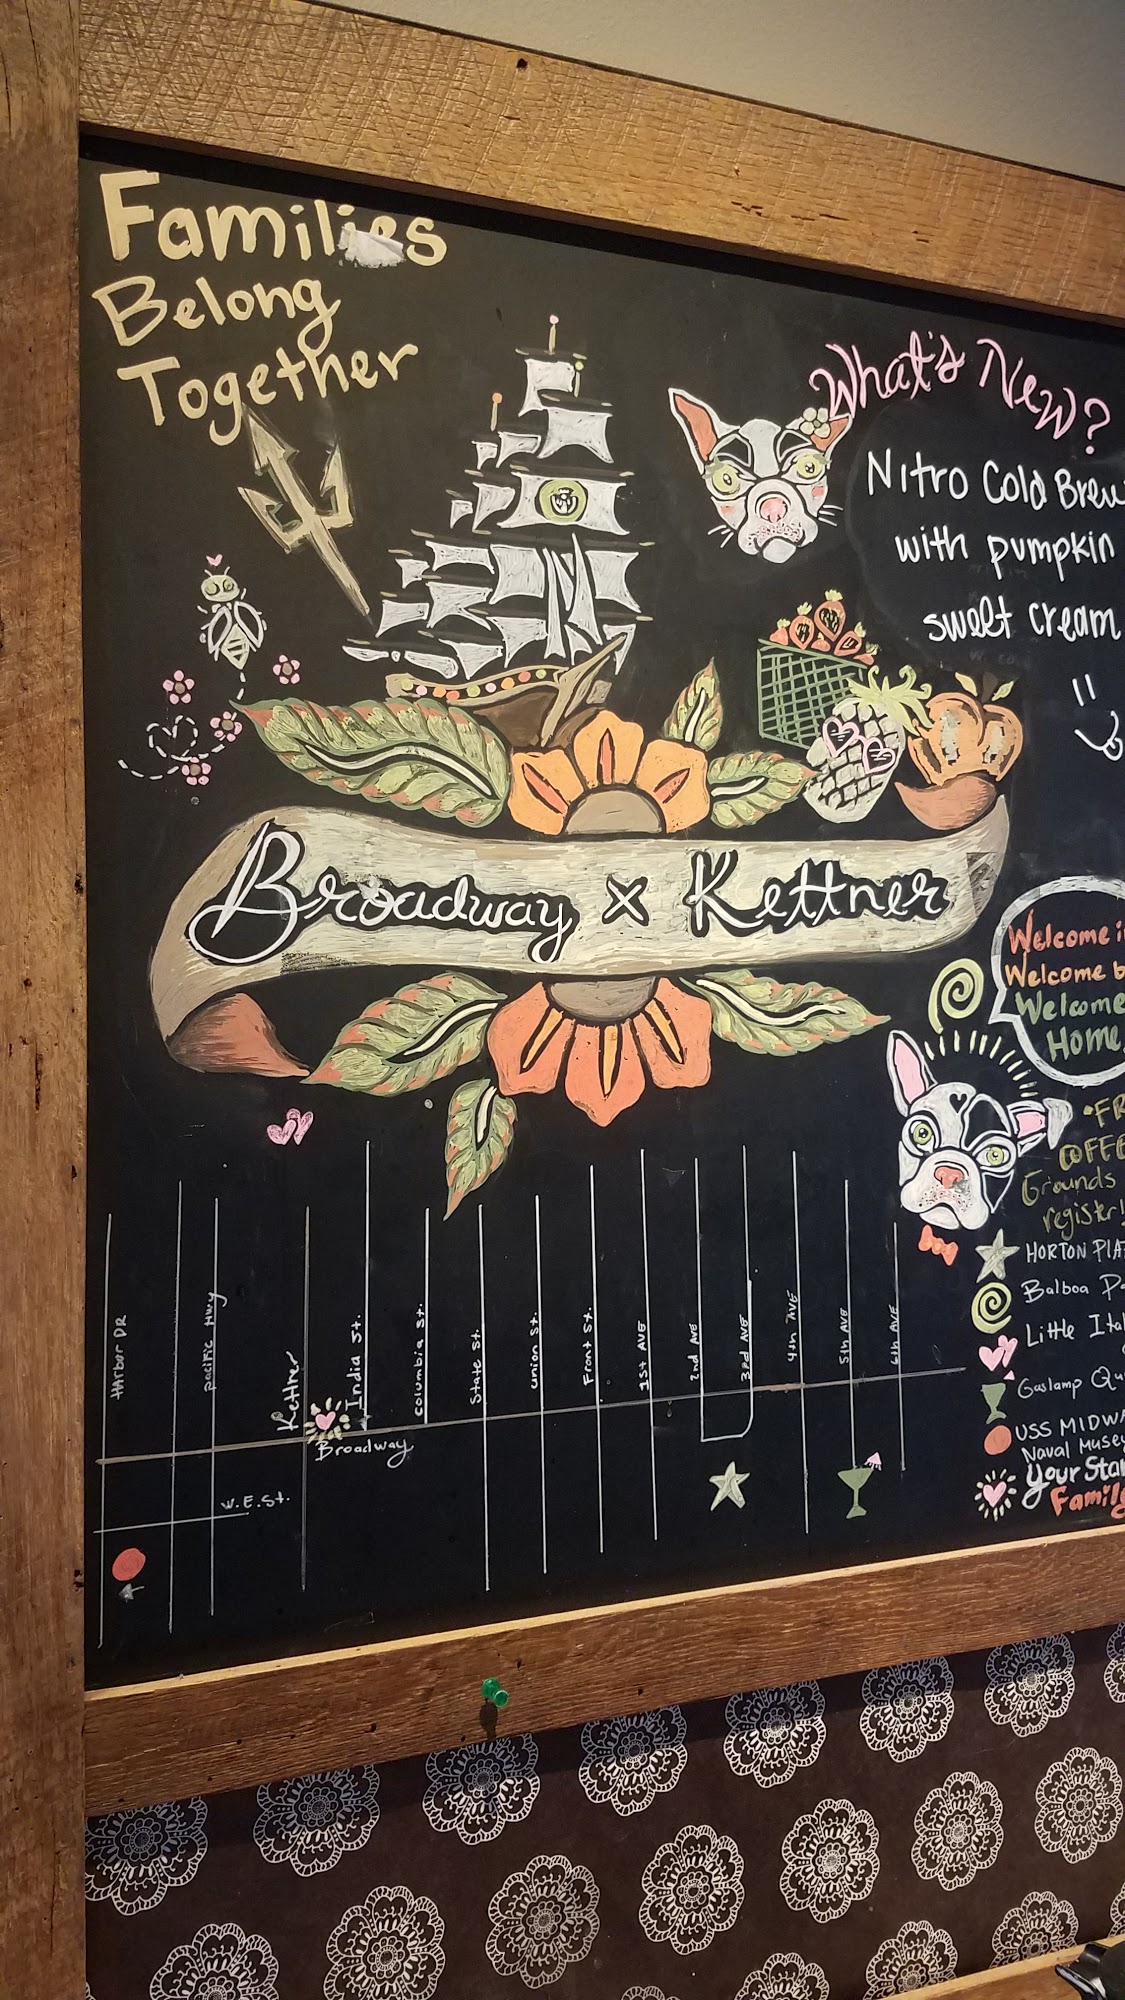 Families
Belong
Together
What's New?
Nitro Cold Brew
with pumpkin
sweet cream
Broadway x Kettner
Welcome i
Welcome b
Welcome
Home
•FR
COFFEE
Grounds
register!
HORTON PLA
Balboa Pa
Little Ital
Gaslamp Qu
USS MIDWA
Naval Museu
Your Star
Family
Harbor DR
pacific Hwy
Kettner
India St.
columbia st.
State st.
union st.
Front St.
1st AVE
2nd AVE
3rd AVE
4th AVE
5th AVE
6th AVE
Broadway
W. E. St.